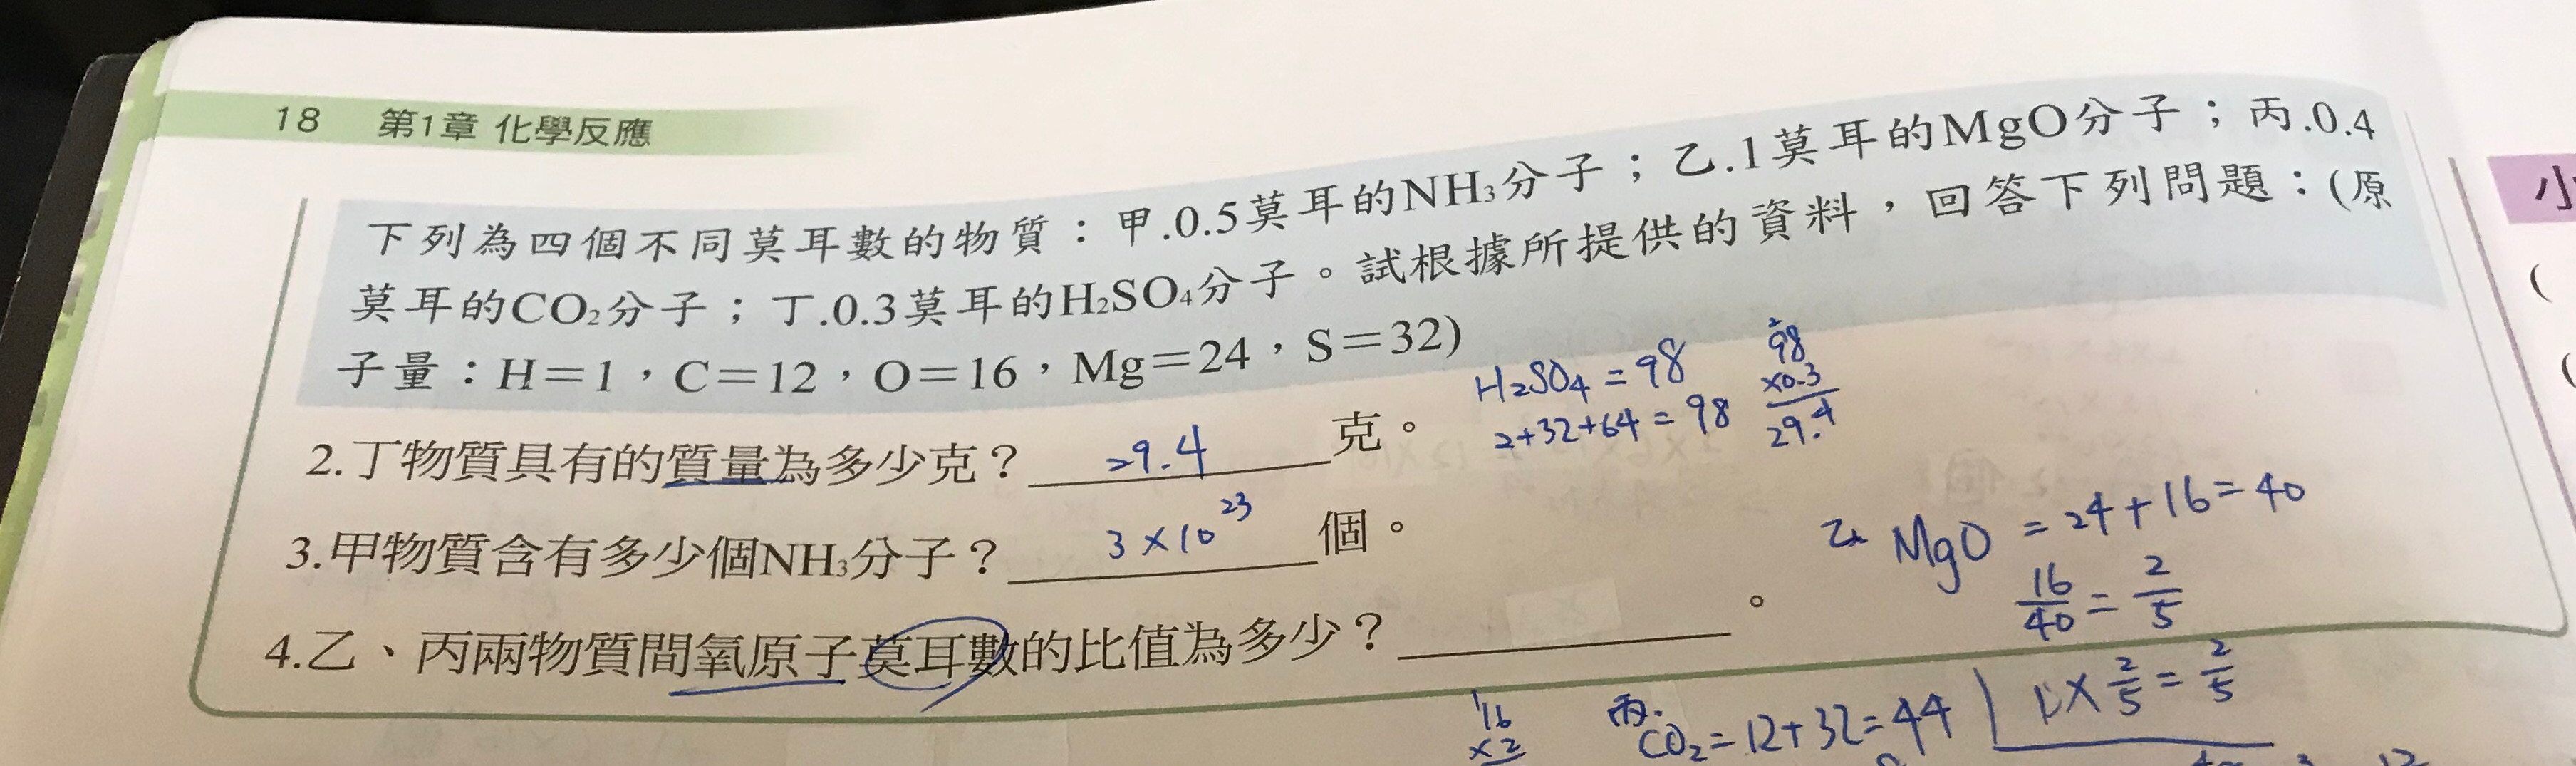 18 第1章 化學反應
下列為四個不同莫耳數的物質：甲.0.5莫耳的NH₃分子；乙.1莫耳的MgO分子；丙.0.4
莫耳的CO₂分子；丁.0.3莫耳的H₂SO₄分子。試根據所提供的資料，回答下列問題：(原
子量：H＝1，C＝12，O＝16，Mg＝24，S＝32)
H₂SO₄ = 98
2+32+64 = 98
2
98
×0.3
29.4
2.丁物質具有的質量為多少克？ 29.4 克。
3.甲物質含有多少個NH₃分子？ 3×10²³ 個。
4.乙、丙兩物質間氧原子莫耳數的比值為多少？ 。
乙. MgO = 24+16=40
16/40 = 2/5
1× 2/5 = 2/5
1
16
×2
丙.
CO₂=12+32=44
小
(
(